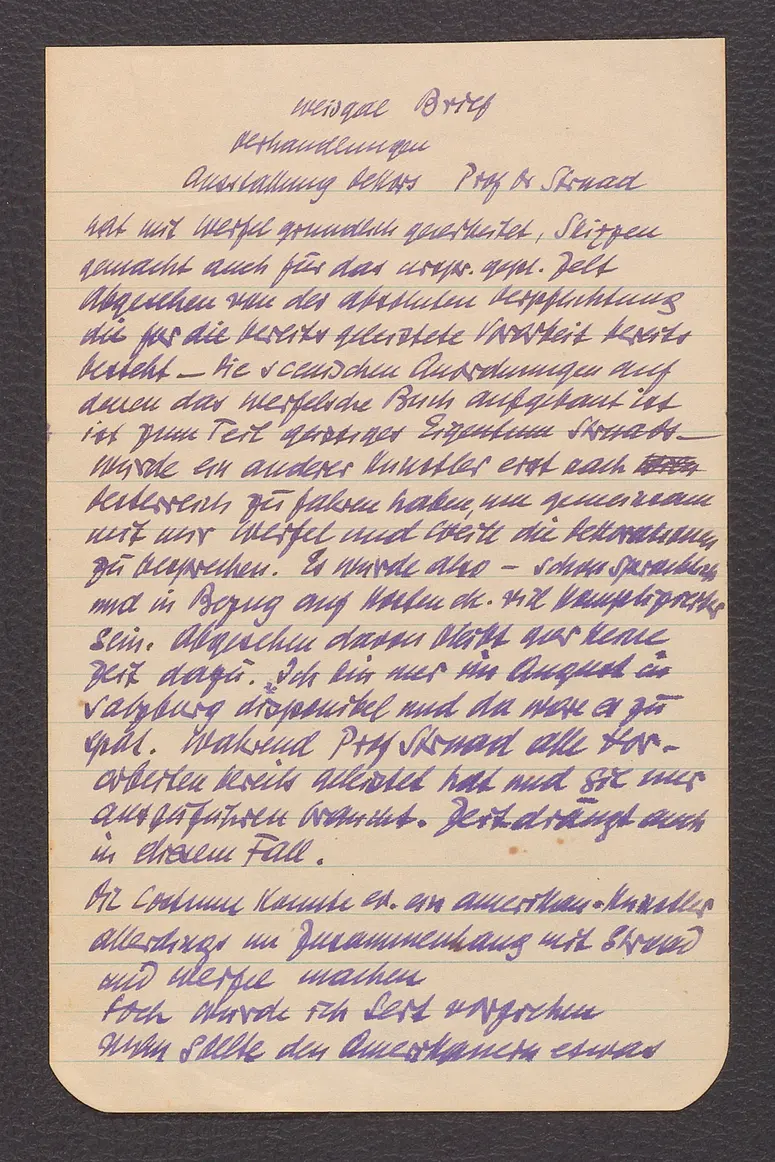 Weisgal Brief
Verhandlungen
Ausstattung Dekors Prof Dr Strnad
hat mit Werfel gründlich gearbeitet, Skizzen
gemacht auch für das urspr. gepl. Zelt
Abgesehen von der absoluten Verpflichtung
die für die bereits geleistete Vorarbeit bereits
besteht – Die scenischen Anordnungen auf
denen das Werfelsche Buch aufgebaut ist
ist zum Teil geistiges Eigentum Strnads –
Würde ein anderer Künstler erst nach
Oesterreich zu fahren haben, um gemeinsam
mit mir Werfel und Weill die Dekorationen
zu besprechen. Es würde also – schon sprachlich
und in Bezug auf Kosten etc. viel komplizierter
sein. Abgesehen davon bleibt gar keine
Zeit dazu. Ich bin nur im August in
Salzburg disponibel und da wäre es zu
spät. Während Prof Strnad alle Vor-
arbeiten bereits geleistet hat und sie nur
auszuführen braucht. Zeit drängt auch
in diesem Fall.
Die Costume könnte ev. ein amerikan. Künstler
allerdings im Zusammenhang mit Strnad
und Werfel machen
Doch würde ich Sert vorziehen
Man sollte den Amerikanern etwas